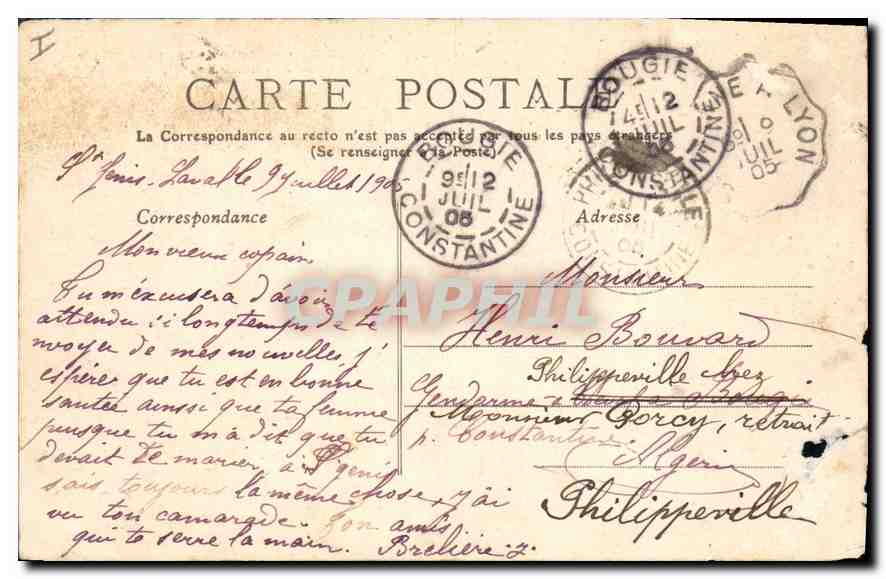 I
CARTE POSTALE
La Correspondance au recto n'est pas acceptée par tous les pays étrangers
(Se renseigner à la Poste)
St Genis-Laval le 9 Juillet 1905
Correspondance
Mon vieux copain
Tu m'éxcusera d'avoir
attendu si longtemps de te
nvoyer de mes nouvelles j'
espérer que tu est en bonne
santée ainsi que ta femme
puisque tu m'a dit que tu
devait te marier, à St genis
sais toujours la même chose, j'ai
vu ton camarade. Ton amis
qui te serre la main. Brelière J.
Adresse
Monsieur
Henri Bouvard
Philippeville chez
Gendarme à Bougie
Monsieur Gorcy, retrait
p. Constantine
Algérie
Philippeville
BOUGIE
9 12
JUIL
05
CONSTANTINE
BOUGIE
4 12
JUIL
05
CONSTANTINE
E A LYON
JUIL
05
CPAPHIL